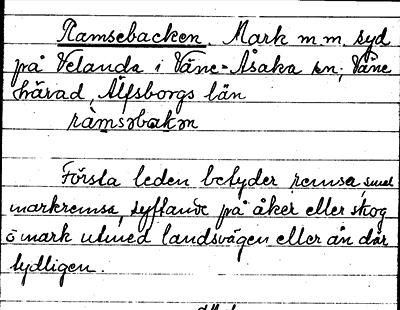 Ramsebacken. Mark m.m. syd
på Velanda i Väne-Åsaka sn, Väne
härad, Älfsborgs län
ràmsəbakən
Första leden betyder remsa, smal
markremsa, syftande på åker eller skog
o mark utmed landsvägen eller ån där
tydligen.